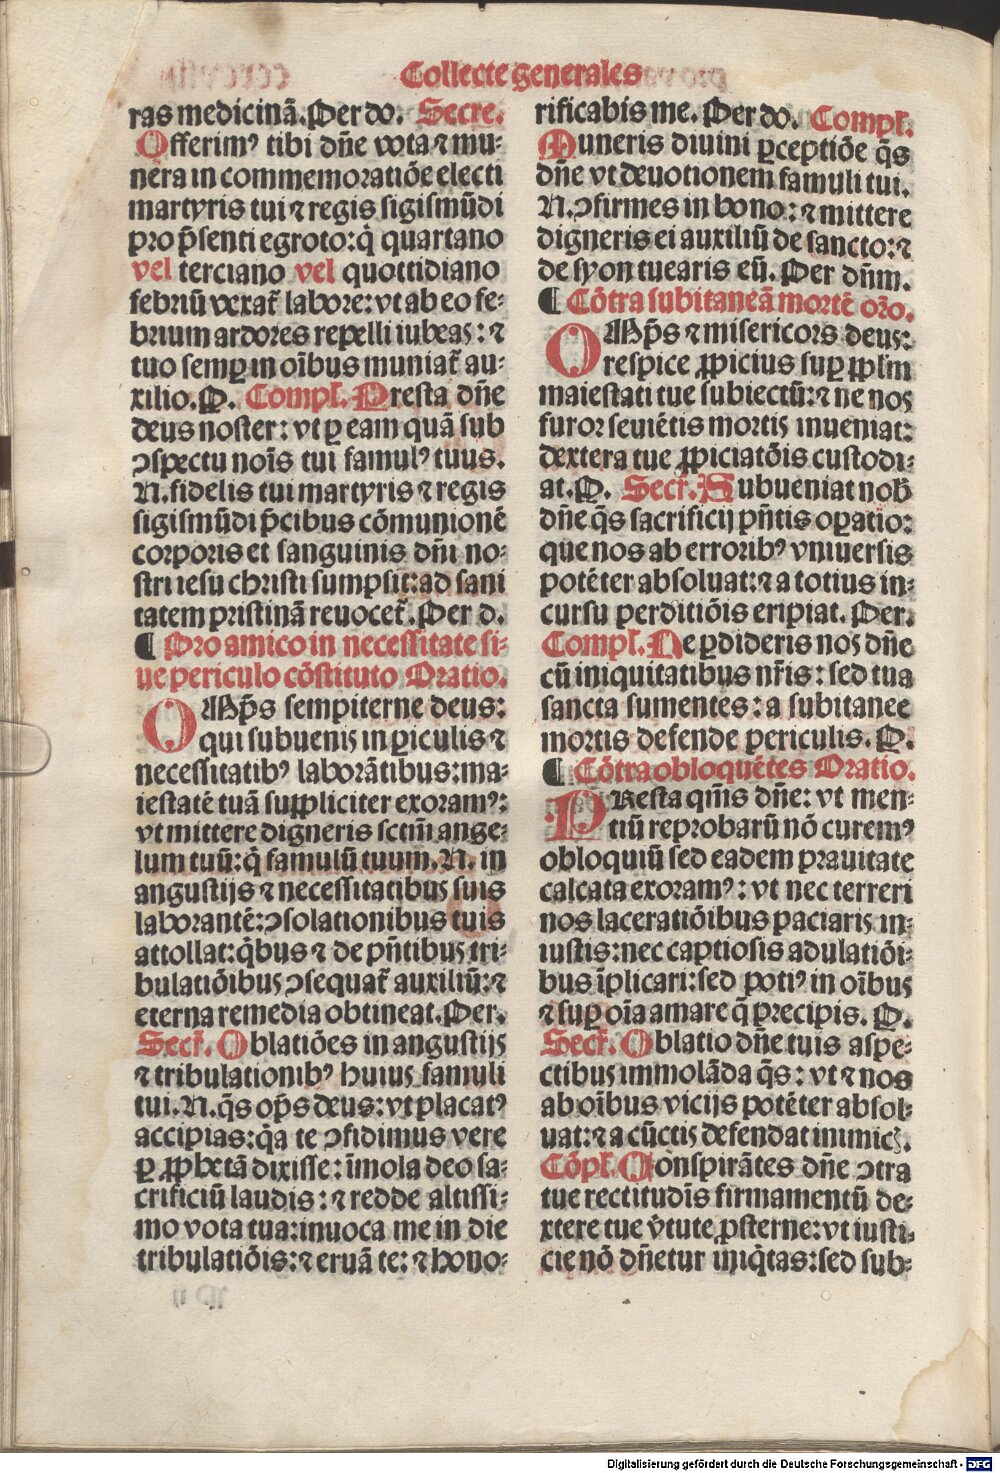 Collecte generales
ras medicinã. Per do. Secre.
Offerimꝰ tibi dñe vota ⁊ mu-
nera in commemoratiõe electi
martyris tui ⁊ regis sigismũdi
pro p̃senti egroto: q̇ quartano
vel terciano vel quottidiano
febriũ vexat̃ labore: vt ab eo fe-
brium ardores repelli iubeas: ⁊
tuo semꝑ in oĩbus muniat̃ au-
xilio. P. Compl. Presta dñe
deus noster: vt ꝑ eam quã sub
ↄspectu noĩs tui famulꝰ tuus.
N. fidelis tui martyris ⁊ regis
sigismũdi p̃cibus cõmunionẽ
corporis et sanguinis dñi no-
stri iesu christi sumpsit: ad sani
tatem pristinã reuocet̃. Per d.
¶ Pro amico in necessitate si-
ue periculo cõstituto Oratio.
OMp̃s sempiterne deus:
qui subuenis in ꝑiculis ⁊
necessitatibꝰ laborãtibus: ma-
iestatẽ tuã suꝓpliciter exoramꝰ:
vt mittere digneris sctm̃ ange-
lum tuũ: q̇ famulũ tuum. N. in
angustijs ⁊ necessitatibus suis
laborantẽ: ↄsolationibus tuis
attollat: q̇bus ⁊ de pñtibus tri-
bulatiõibus ↄsequat̃ auxiliũ: ⁊
eterna remedia obtineat. Per.
Secr̃. Oblatiões in angustijs
⁊ tribulationibꝰ huius famuli
tui. N. q̃s op̃s deus: vt placatꝰ
accipias: q̇a te ↄfidimus vere
ꝑ ꝓphetã dixisse: ĩmola deo sa-
crificiũ laudis: ⁊ redde altissi-
mo vota tua: inuoca me in die
tribulatiõis: ⁊ eruã te: ⁊ hono-
rificabis me. Per do. Compl.
Muneris diuini ꝑceptiõe q̃s
dñe vt deuotionem famuli tui.
N. ↄfirmes in bono: ⁊ mittere
digneris ei auxiliũ de sancto: ⁊
de syon tuearis eũ. Per dñm.
¶ Cõtra subitaneã mortẽ orõ.
OMp̃s ⁊ misericors deus:
respice ꝓpicius suꝑ ꝓplm̃
maiestati tue subiectũ: ⁊ ne nos
furor seuiẽtis mortis inueniat:
dextera tue ꝓpiciatõis custodi-
at. P. Secr̃. Subueniat nob̃
dñe q̃s sacrificij pñtis oꝑatio:
que nos ab erroribꝰ vniuersis
potẽter absoluat: ⁊ a totius in-
cursu perditiõis eripiat. Per.
Compl. Ne ꝑdideris nos dñe
cũ iniquitatibus nr̃is: sed tua
sancta sumentes: a subitanee
mortis defende periculis. P.
¶ Cõtra obloquẽtes Oratio.
PResta qm̃s dñe: vt men-
tiũ reprobarũ nõ curemꝰ
obloquiũ sed eadem prauitate
calcata exoramꝰ: vt nec terreri
nos laceratiõibus paciaris in-
iustis: nec captiosis adulatiõi-
bus ĩplicari: sed potiꝰ in oĩbus
⁊ suꝑ oĩa amare q̃ precipis. P.
Secr̃. Oblatio dñe tuis aspe-
ctibus immolãda q̃s: vt ⁊ nos
ab oĩbus vicijs potẽter absol-
uat: ⁊ a cũctis defendat inimic̃.
Cõpl. Conspirãtes dñe ↄtra
tue rectitudĩs firmamentũ de-
xtere tue v̇tute ꝓsterne: vt iusti-
cie nõ dñetur iniq̇tas: sed sub-
Digitalisierung gefördert durch die Deutsche Forschungsgemeinschaft - DFG